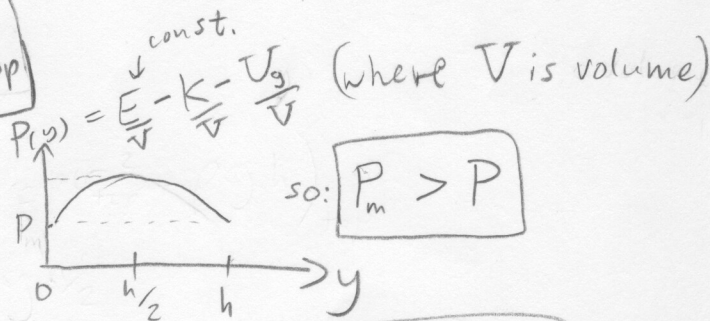 op
const.
P(y) = E/V - K/V - Ug/V (where V is volume)
P
so: Pm > P
0 h/2 h y